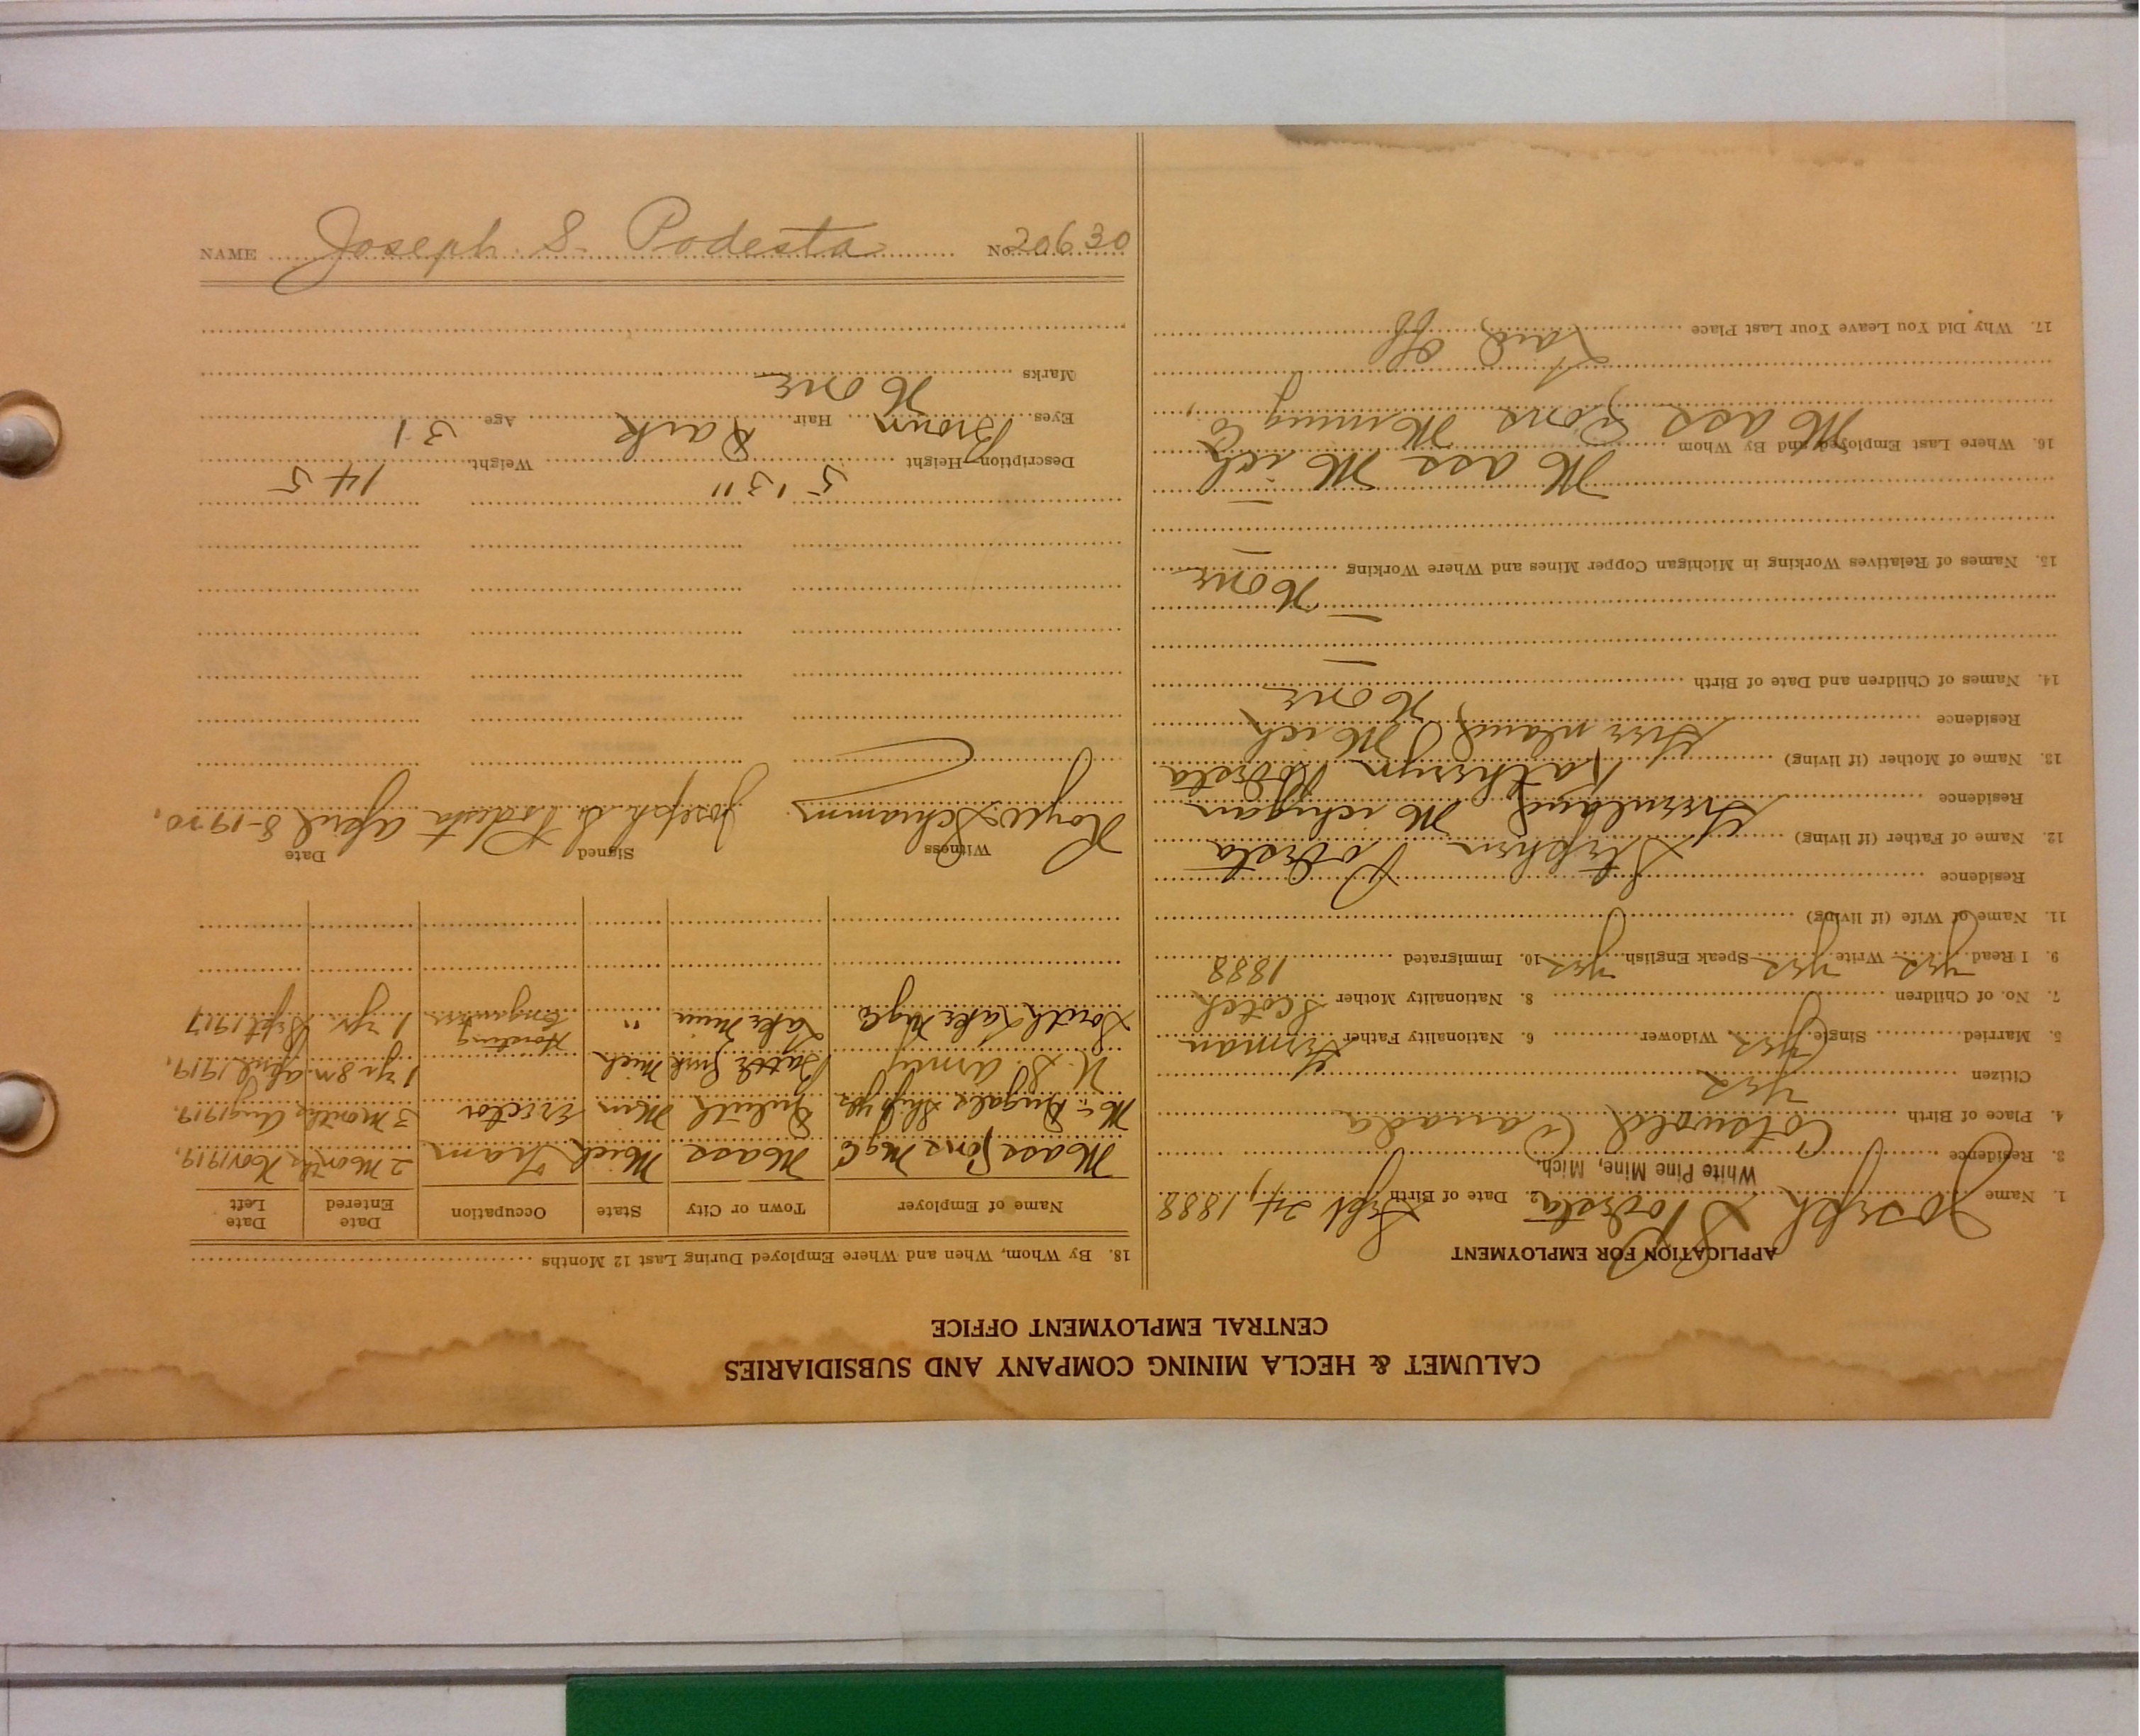 CALUMET & HECLA MINING COMPANY AND SUBSIDIARIES
CENTRAL EMPLOYMENT OFFICE
APPLICATION FOR EMPLOYMENT
1. Name Joseph S Podesta 2. Date of Birth Sept 24, 1888
3. Residence White Pine Mine, Mich.
4. Place of Birth Cotswold Canada
Citizen Yes
5. Married Single Yes Widower 6. Nationality Father German
7. No. of Children 8. Nationality Mother Scotch
9. I Read Yes Write Yes Speak English Yes 10. Immigrated 1888
11. Name of Wife (if living)
Residence
12. Name of Father (if living) Stephen Podesta
Residence Greenland Michigan
13. Name of Mother (if living) Kathryn Podesta
Residence Greenland, Mich
14. Names of Children and Date of Birth None
15. Names of Relatives Working in Michigan Copper Mines and Where Working None
16. Where Last Employed and By Whom Mass Mich
Mass Cons Mining Co,
17. Why Did You Leave Your Last Place Laid Off
18. By Whom, When and Where Employed During Last 12 Months
Name of Employer Town or City State Occupation Date Entered Date Left
Mass Cons Mg Co Mass Mich Tram 2 Months Nov 1919.
Mc Dugals Ship yds Duluth Min Erector 3 Months Aug 1919.
U. S. army Battle Creek Mich 1 yr 8 m. april 1919.
South Lake Mg Co Lake Mine " Hoisting Engineer 1 yr. Sept 1917
Witness Signed Date
Royce Schramm Joseph S. Podesta April 8-1920.
Description—Height 5' 3" Weight 145
Eyes Brown Hair Dark Age 31
Marks None
NAME Joseph S. Podesta No. 20630